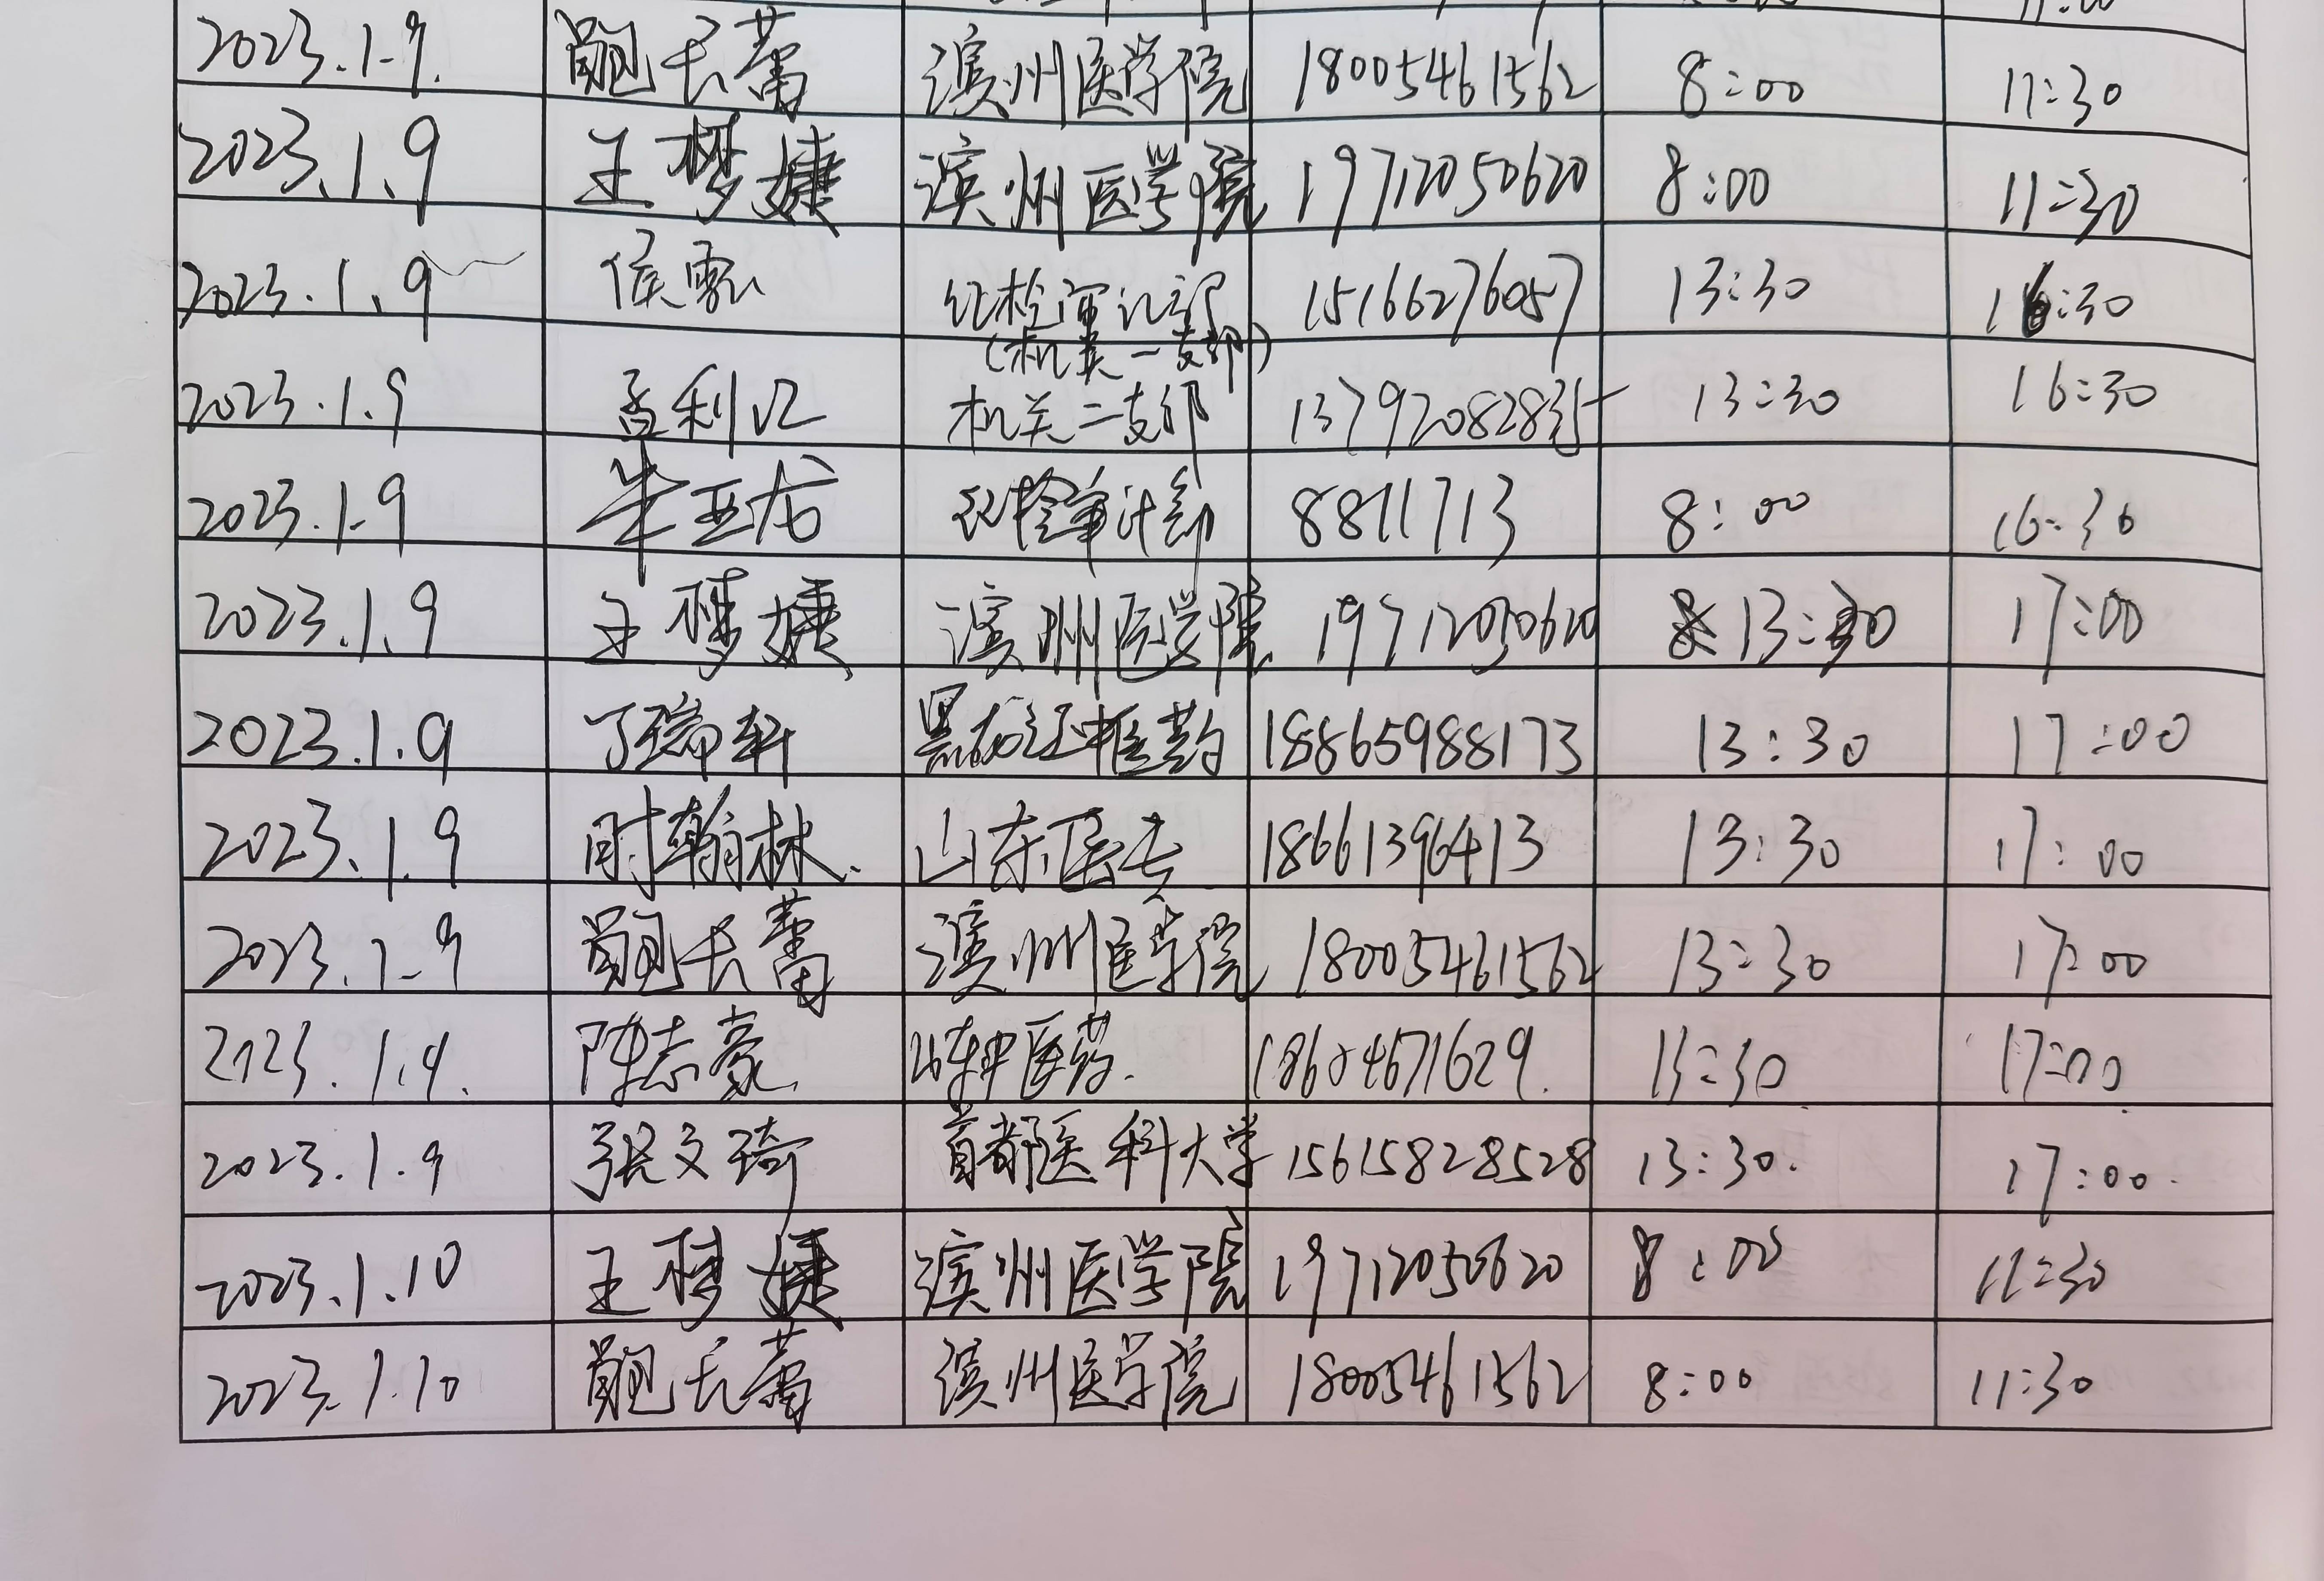 11:00
2023.1.9. 滨州医学院 18005461562 8:00 11:30
2023.1.9 王梦婕 滨州医学院 19712050620 8:00 11:30
2023.1.9 侯 纪检审计部 15166276057 13:30 16:30
(机关一支部)
2023.1.9 孟利 机关二支部 13:30 16:30
2023.1.9 牟亚龙 纪检审计部 8811713 8:00 16:30
2023.1.9 王梦婕 滨州医学院 19712050620 13:30 17:00
2023.1.9 丁瑞轩 黑龙江中医药 18865988173 13:30 17:00
2023.1.9 时翰林. 山东医专 18661396413 13:30 17:00
2023.1.9 滨州医学院 18005461562 13:30 17:00
2023.1.9. 陈志豪 山东中医药. 18604671629. 13:30 17:00
2023.1.9 张文琦 首都医科大学 15615828528 13:30. 17:00.
2023.1.10 王梦婕 滨州医学院 19712050620 8:00 11:30
2023.1.10 滨州医学院 18005461562 8:00 11:30